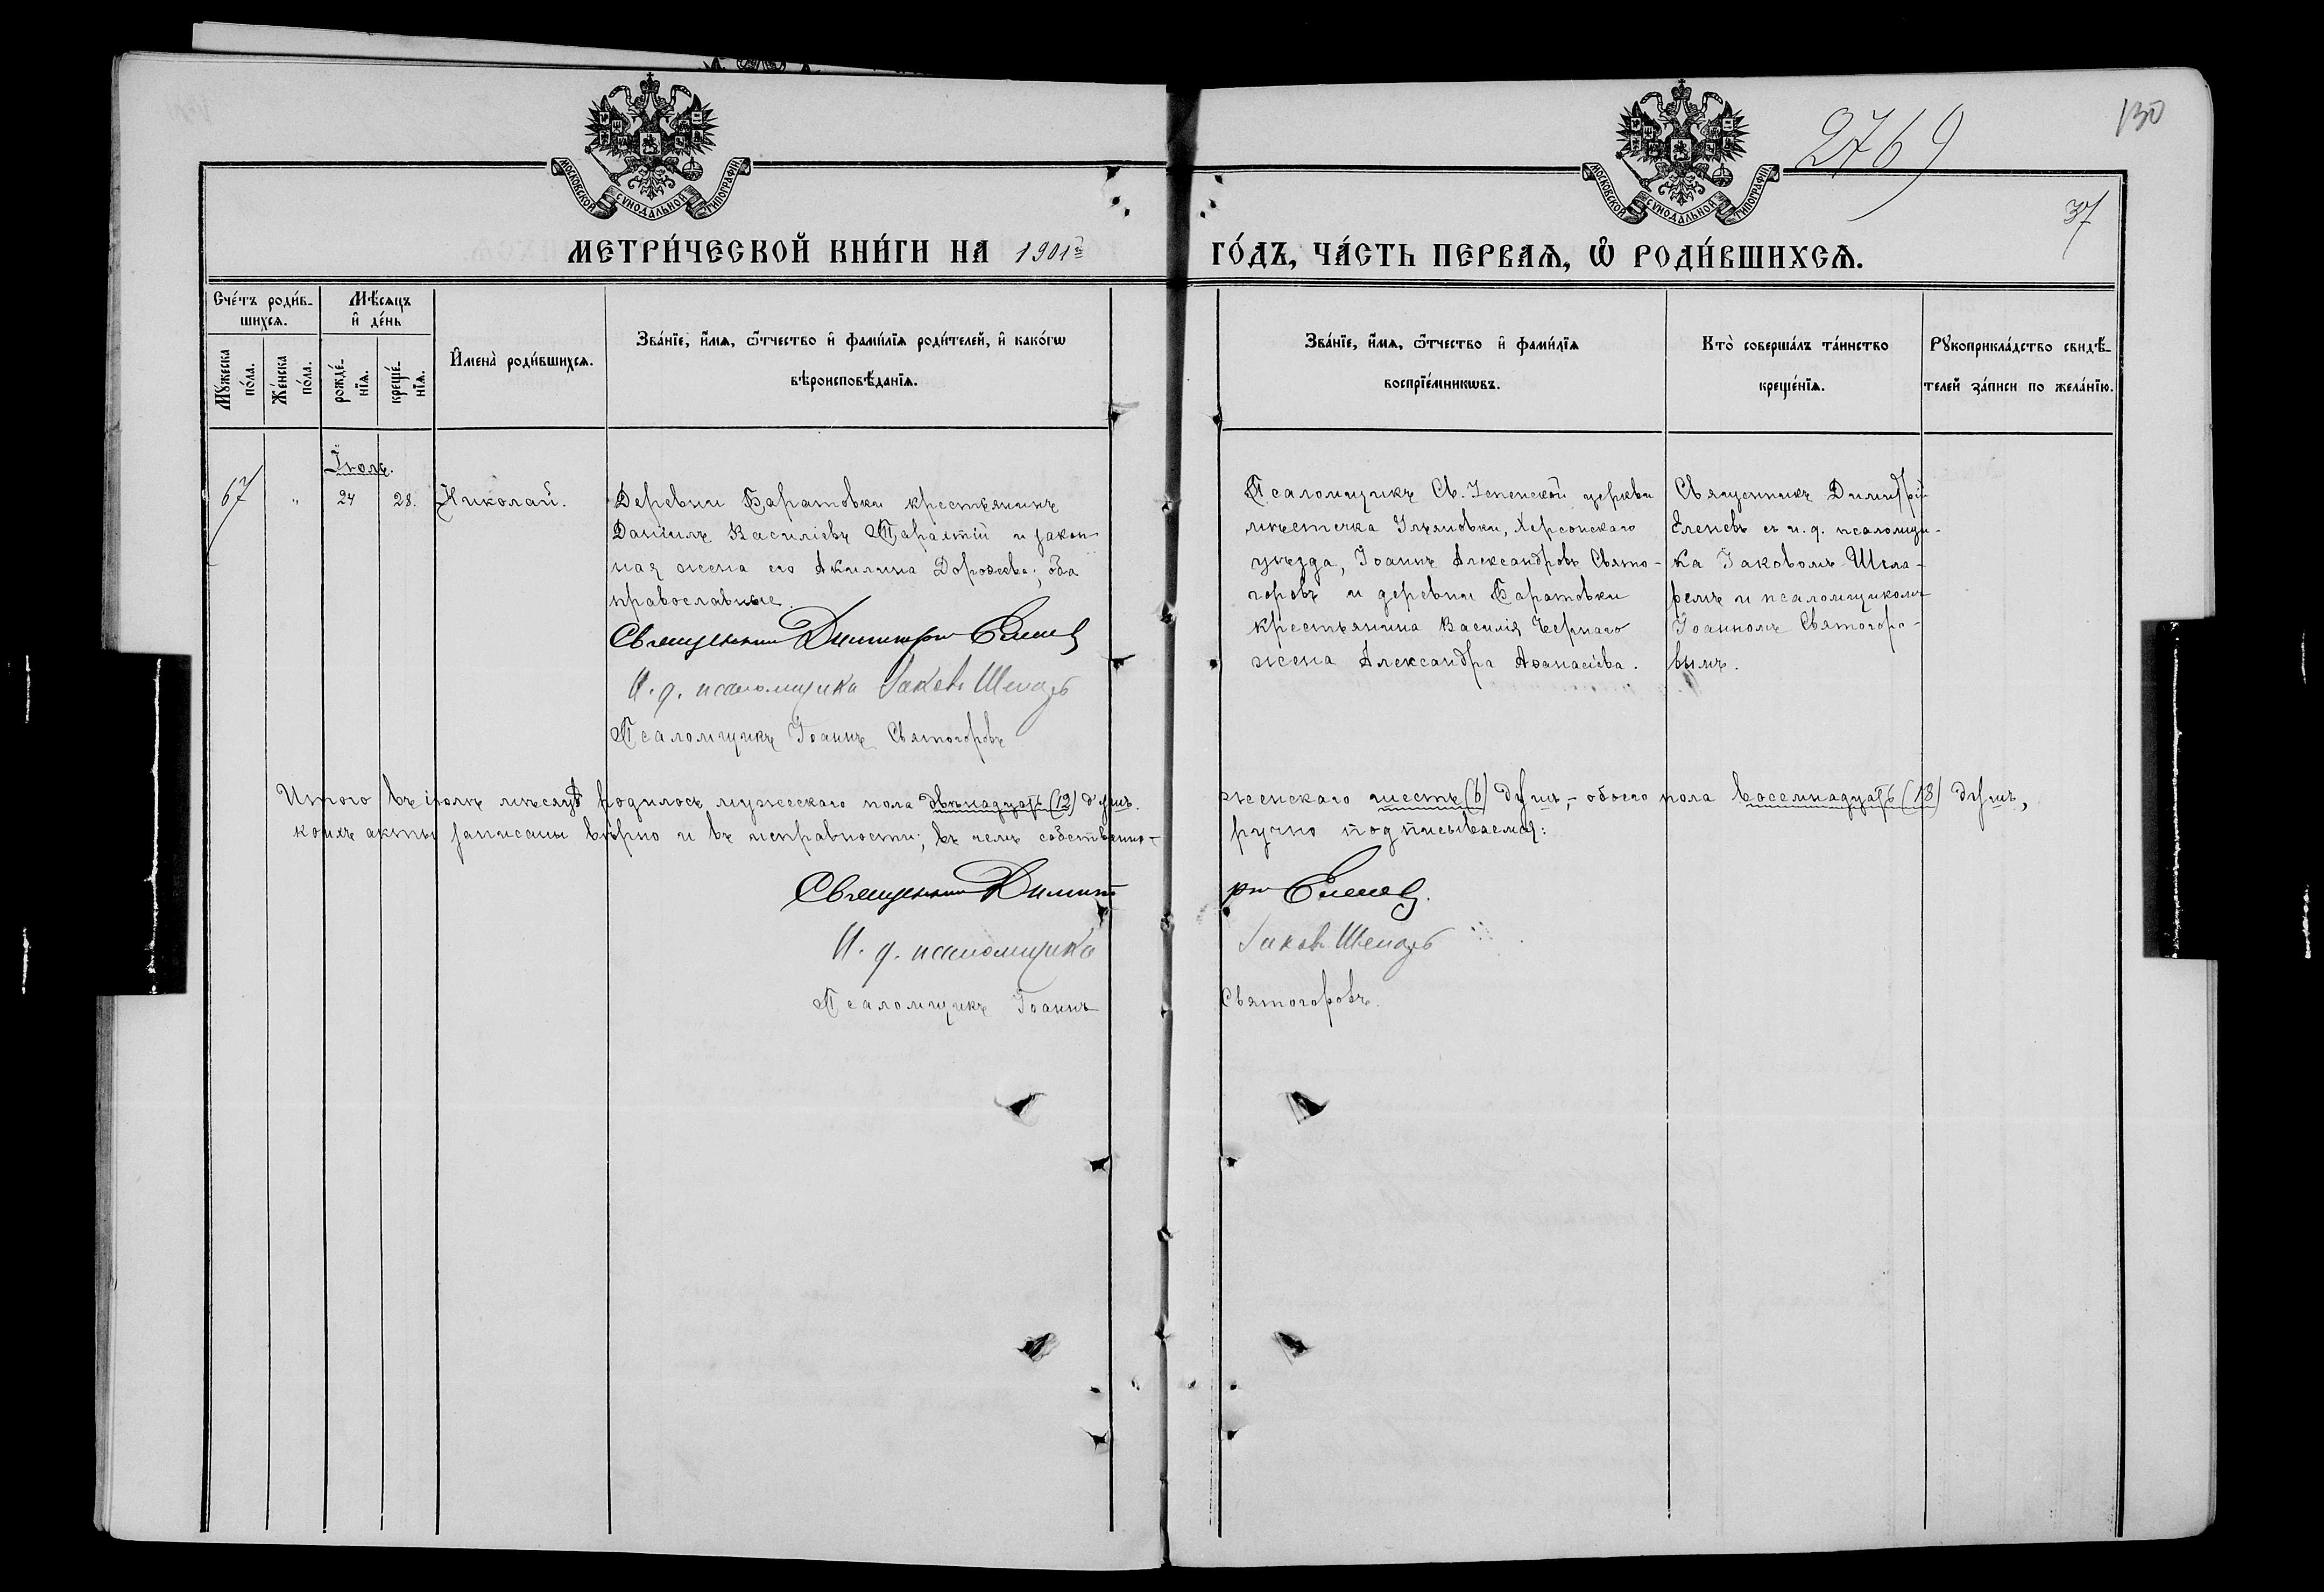 МОСКОВСКОЙ СУНОДАЛЬНОЙ ТИПОГРАФІИ
МОСКОВСКОЙ СУНОДАЛЬНОЙ ТИПОГРАФІИ
2769
130
37
МЕТРИ́ЧЕСКОЙ КНИ́ГИ НА 1901й ГО́ДЪ, ЧА́СТЬ ПЕРВАѦ, Ѡ҆ РОДИ́ВШИХСѦ.
Сче́тъ роди́в-
шихсѧ.
Мꙋ́жеска по́ла.
Же́нска по́ла.
Мѣ́сѧцъ
и҆ де́нь
рожде́-
нїѧ.
креще́-
нїѧ.
И҆мена̀ роди́вшихсѧ.
Зва́нїе, и҆́мѧ, ѻ҆́тчество и҆ фами́лїѧ роди́телей, и҆ како́гѡ
вѣроисповѣ́данїѧ.
Зва́нїе, и҆́мѧ, ѻ҆́тчество и҆ фами́лїѧ
воспрїе́мникѡвъ.
Кто̀ соверша́лъ та́инство
креще́нїѧ.
Рꙋкоприкла́дство свидѣ́-
телей за́писи по жела́нїю.
Іюль.
67 " 24 28. Николай.
Деревни Баратовки крестьянинъ
Даніилъ Василіевъ и закон-
ная жена его Акилина Дорофеева; оба
православные.
Священникъ Димитрій Еленев
И. д. псаломщика Іаковъ
Псаломщикъ Іоаннъ Святогоровъ
Псаломщикъ Св. Успенской церкви
мѣстечка Ульяновки, Херсонскаго
уѣзда, Іоаннъ Александровъ Свято-
горовъ и деревни Баратовки
крестьянина Василія Чернаго
жена Александра Аѳанасіева.
Священникъ Димитрій
Еленевъ съ и. д. псаломщи-
ка Іаковомъ
и псаломщикомъ
Іоанномъ Святогоро-
вымъ.
Итого въ іюлѣ мѣсяцѣ родилось мужескаго пола двѣнадцать (12) душъ. женскаго шесть (6) душъ,- обоего пола восемнадцать (18) душъ,
коихъ акты записаны вѣрно и въ исправности; въ чемъ собственно-ручно подписываемся:
Священникъ Димитрій Еленев.
И. д. псаломщика Іаковъ
Псаломщикъ Іоаннъ Святогоровъ.